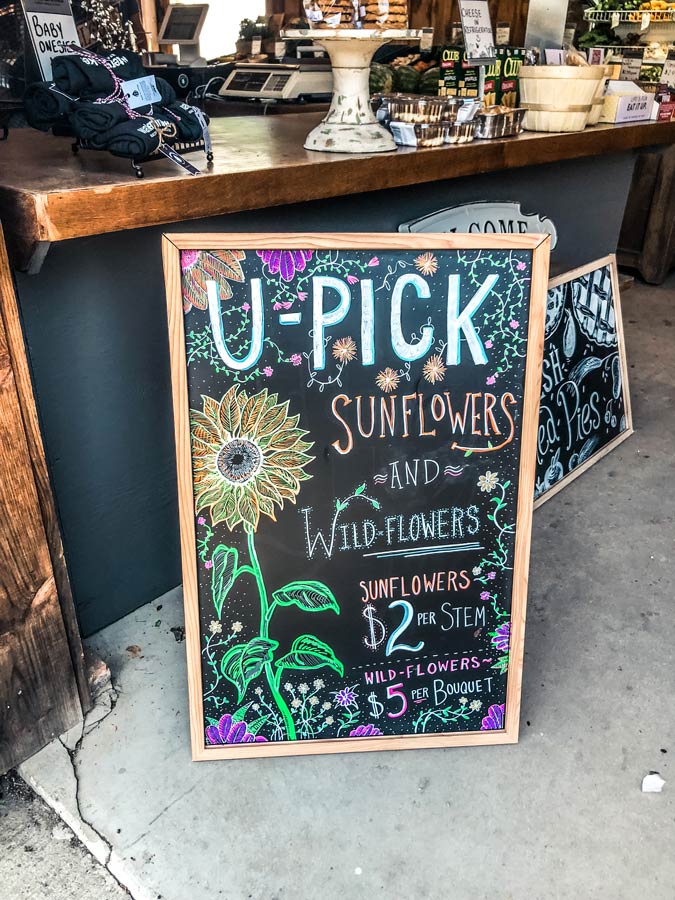 BABY
ONESIES
CHEESE IN
REFRIGERATOR
CLUB
EAT IT UP
COME
U-PICK
SUNFLOWERS
~AND~
WILD-FLOWERS
SUNFLOWERS
$2 PER STEM
WILD-FLOWERS~
$5 PER BOUQUET
Pies